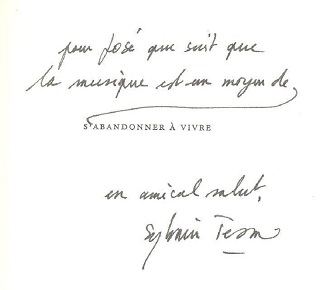 pour José que sait que
la musique est un moyen de
S'ABANDONNER À VIVRE
en amical salut,
Sylvain Tesson